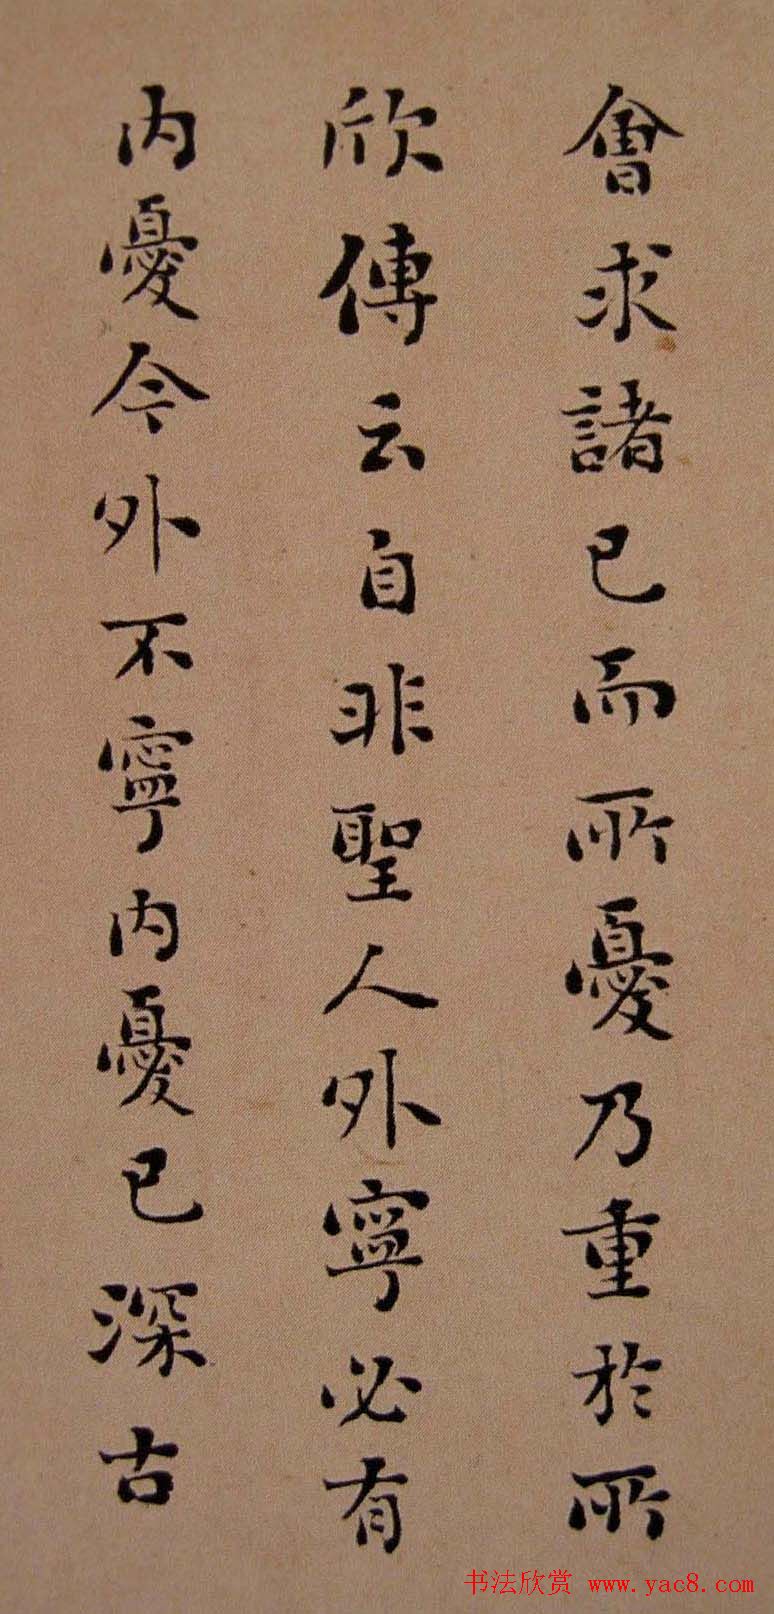 會求諸己而所憂乃重於所
欣傳云自非聖人外寧必有
内憂今外不寧内憂已深古
书法欣赏 www.yac8.com